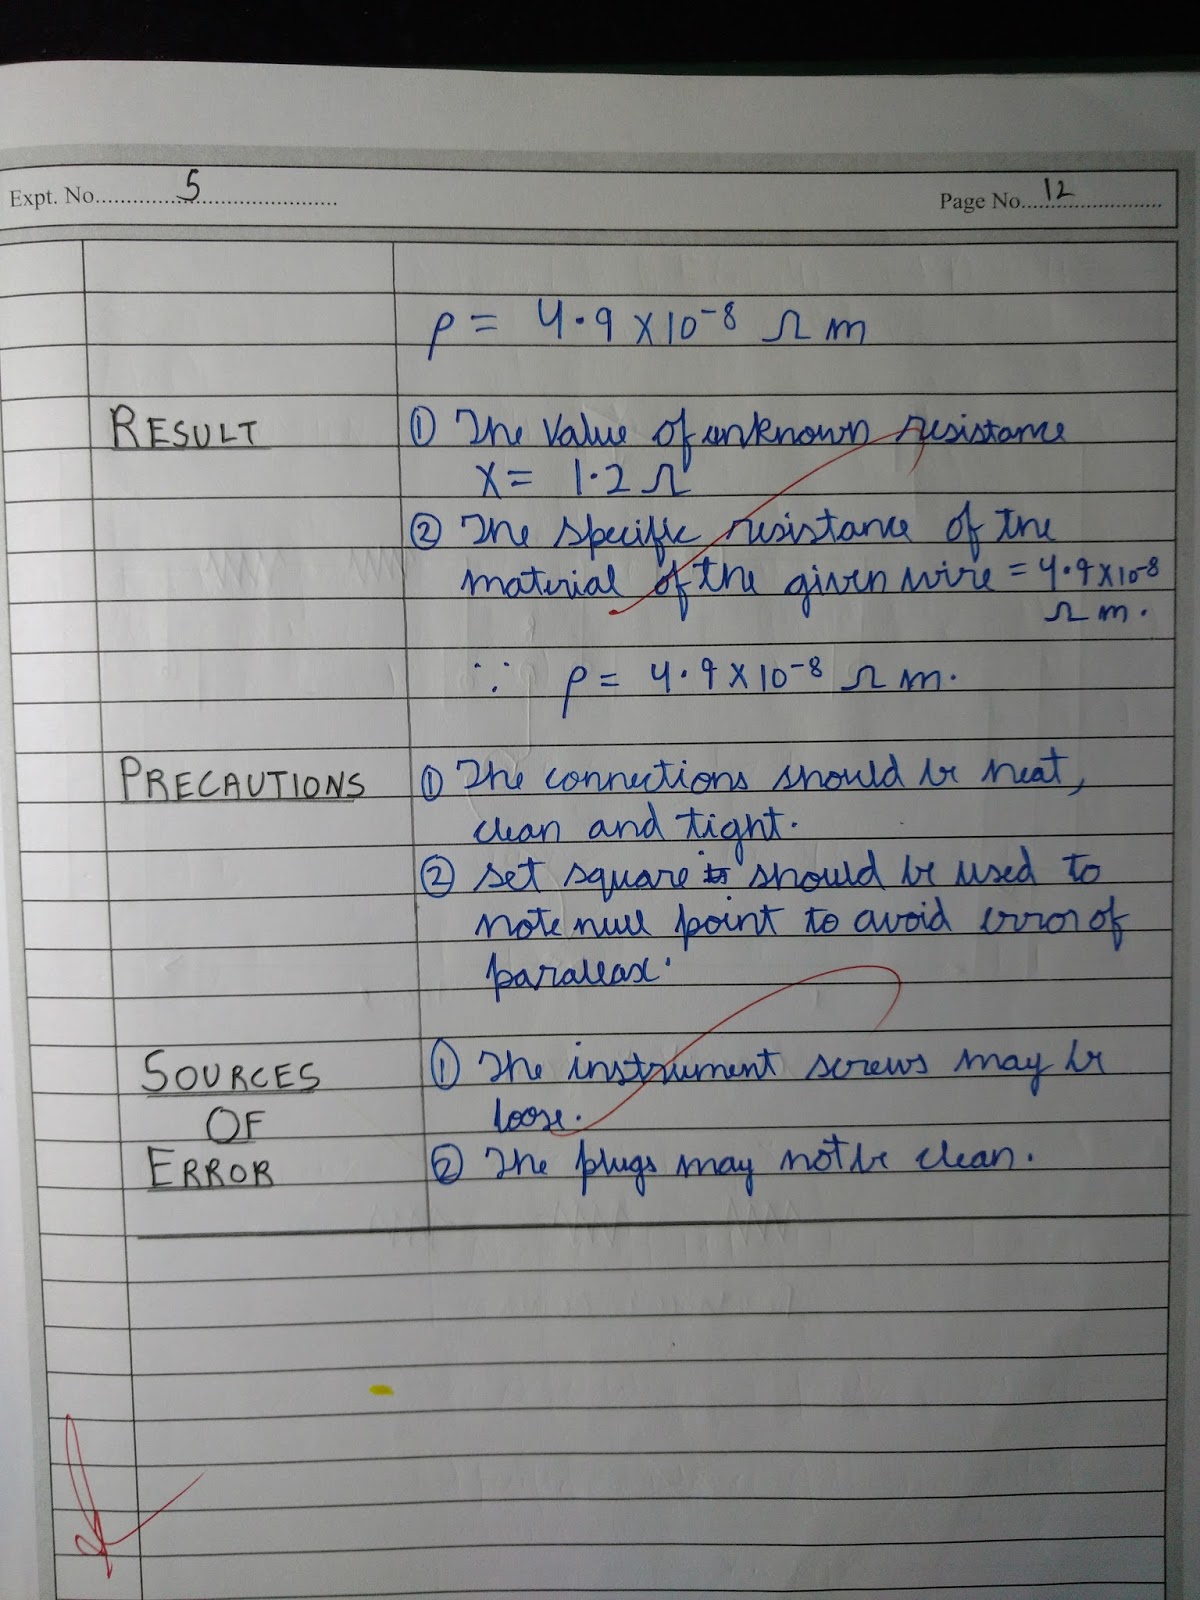 Expt. No. 5
Page No. 12
ρ = 4.9 x 10⁻⁸ Ω m
RESULT ① The value of unknown resistance
X = 1.2 Ω
② The specific resistance of the
material of the given wire = 4.9 x 10⁻⁸
Ω m.
∵ ρ = 4.9 x 10⁻⁸ Ω m.
PRECAUTIONS ① The connections should be neat,
clean and tight.
② set square should be used to
note null point to avoid error of
parallax.
SOURCES ① The instrument screws may be
OF loose.
ERROR ② The plugs may not be clean.